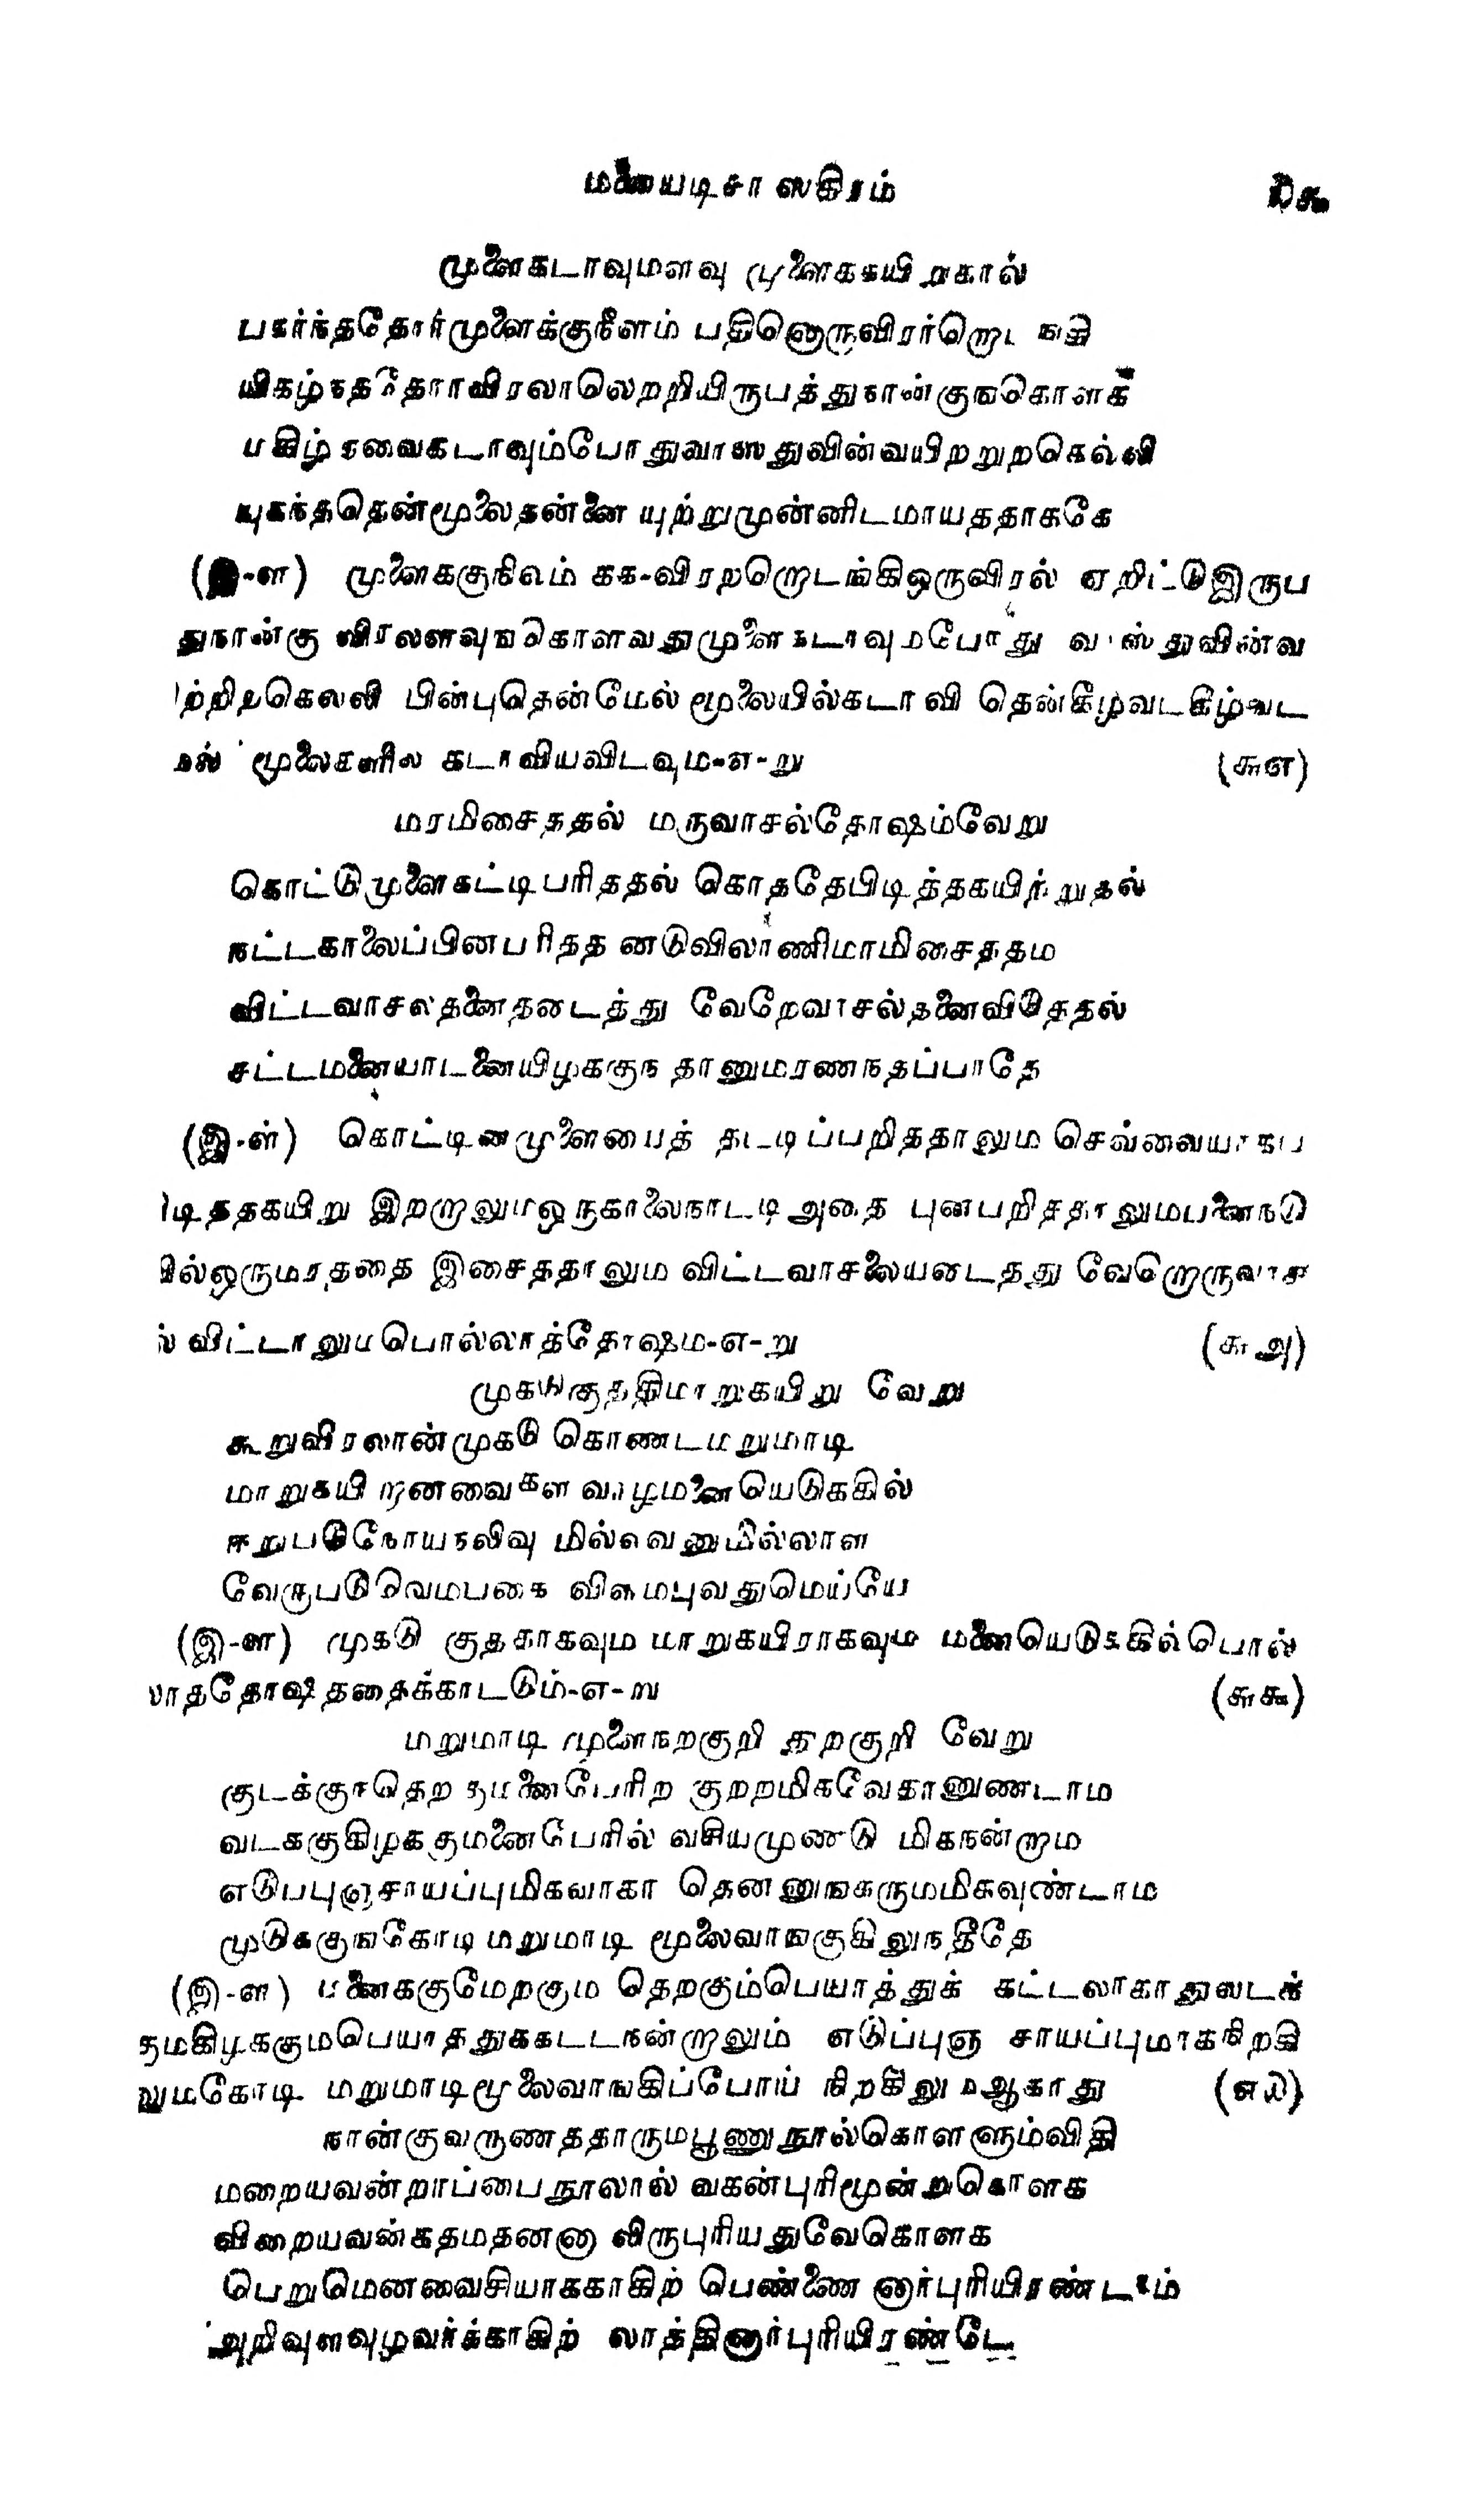 மனையடிசாஸதிரம் ௰௯
முளைகடாவுமளவு முளைககயிறுகால்
பகர்ந்ததோர்முளைக்குநீளம் பதினொருவிரர்றொடஙகி
யிகழ்நததோரவிரலாலெறறியிருபத்துநான்குஙகொளக
மகிழ்நவைகடாவும்போதுவாஸதுவின்வயிறறுறகெல்லி
யுகந்ததென்மூலைதன்னை யுற்றுமுன்னிடமாயததாகதே
(இ-ள) முளைககுநிளம் கக-விரறறொடங்கிஒருவிரல் ஏறிட்டுஇருப
துநான்கு விரலளவுஙகொளவதுமுளை கடாவுமபோது வாஸ்துவின்வ
ற்றிறகெலலி பின்புதென்மேல் மூலையில்கடாவி தென்கீழ்வடகிழ்வட
மேல் மூலைகளில கடாவியவிடவும-எ-று (௬௭)
மரமிசைததல் மருவாசல்தோஷம்வேறு
கொட்டுமுளைகட்டிபரிததல் கொததேபிடித்தகயிற்றுதல்
நட்டகாலைப்பினபரிதத னடுவிலாணிமாமிசைததம
விட்டவாசலதனைதடைத்து வேறேவாசல்தனைவிடுததல்
சட்டமனையாடனையிழககுந தானுமரணநதப்பாதே
(இ-ள்) கொட்டினமுளையைத் தட்டிப்பறிததாலும செவ்வையாகப
டிததகயிறு இறறாலுமஒருகாலைநாடடி அதை புனபறிததாலுமமனைநடு
வில்ஒருமரததை இசைததாலும விட்டவாசலையடைதது வேறொருவாச
ல் விட்டாலுமபொல்லாத்தோஷம-எ-று (௬௮)
முகடுகுததிமாறுகயிறு வேறு
கூறுவிரலான்முகடு கொணடமறுமாடி
மாறுகயிறானவைகள வாழமனையெடுககில்
ஈறுபடுநோயநலிவு மில்லெனுமில்லாள
வேறுபடுவெமபகை விளமபுவதுமெய்யே
(இ-ள) முகடு குததாகவும மாறுகயிராகவும மனையெடுககில்பொல்
லாததோஷததைக்காடடும்-எ-று (௬௯)
மறுமாடி முளைநறகுறி துறகுறி வேறு
குடக்குநதெற குமனைபேரிற குறறமிகவேதானுணடாம
வடககுகிழககுமனைபேரில் வசியமுணடு மிகநன்றாம
எடுபபுஞசாயப்புமிகவாகா தெனனுஙகருமமிகவுண்டாம
முடுககுஙகோடி மறுமாடி மூலைவாஙகுகிலுநதீதே
(இ-ள) மனைககுமேறகும தெறகும்பெயாத்துக் கட்டலாகாதுவடக்
குமகிழககுமபெயாததுககடடநன்றாலும் எடுப்புஞ சாயப்புமாகநிறகி
லுமகோடி மறுமாடிமூலைவாஙகிப்போய் நிறகிலுமஆகாது (௭௰)
நான்குவருணததாருமபூணுநூல்கொளளும்விதி
மறையவன்றாப்பைநூலால் வகன்புரிமூன்றுகொளக
விறையவன்கதமதனனா லிருபுரியதுவேகொளக
பெறுமெனவைசியாககாகிற் பெண்ணைனார்புரியிரண்டாம்
அறிவுளவுழவர்க்காகிற் லாத்தினார்புரியிரண்டே